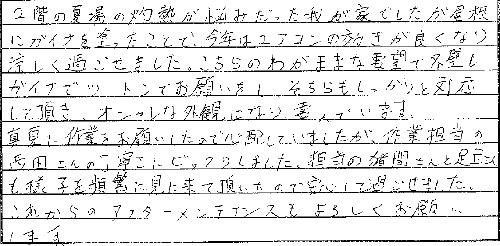 2階の夏場の灼熱が悩みだった我が家でしたが屋根
にガイナを塗ったことで、今年はエアコンの効きが良くなり
涼しく過ごせました。こちらのわがままな要望で外壁も
ガイナでツートンでお願いをし、そちらもしっかりと対応
して頂き、オシャレな外観になり喜んでいます。
真夏に作業をお願いしたので心配していましたが、作業担当の
西田さんの丁寧さにビックリしました。担当の猪間さんと足立さん
も様子を頻繁に見に来て頂いたので安心して過ごせました。
これからのアフターメンテナンスもよろしくお願い
します